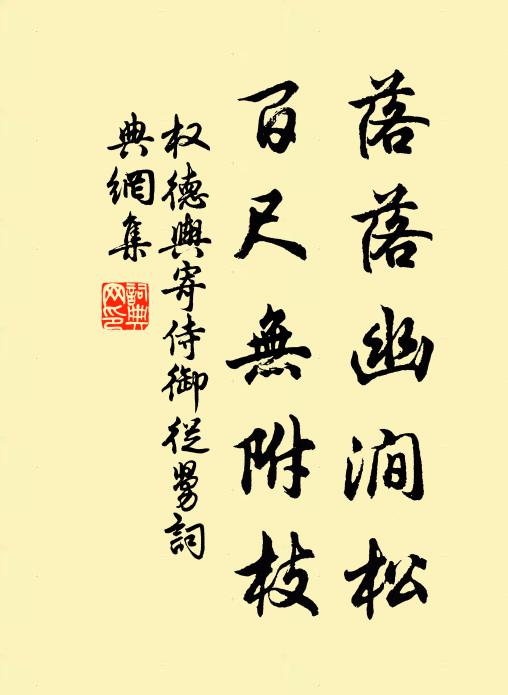 落落幽澗松
百尺無附枝
权德輿寄侍御從舅詞
典網集
詞典
网印